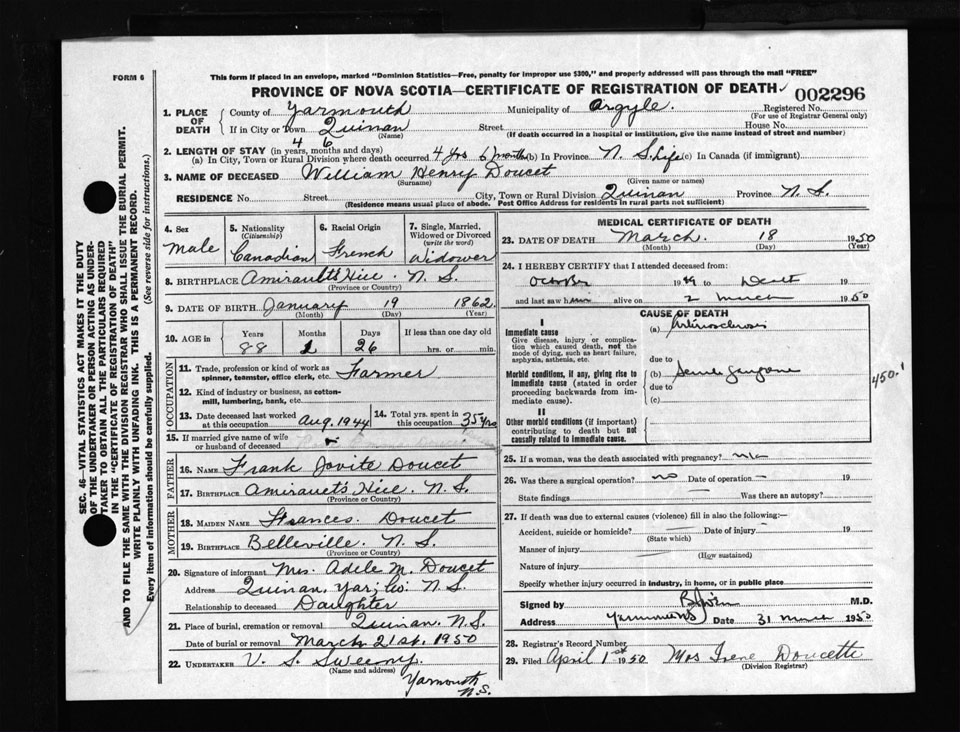 FORM 6
This form if placed in an envelope, marked "Dominion Statistics—Free, penalty for improper use $300," and properly addressed will pass through the mail "FREE"
PROVINCE OF NOVA SCOTIA—CERTIFICATE OF REGISTRATION OF DEATH
002296
1. PLACE OF DEATH
County of Yarmouth Municipality of Argyle. Registered No.
(For use of Registrar General only)
If in City or Town Quinan Street House No.
(Name) (If death occurred in a hospital or institution, give the name instead of street and number)
4 6
2. LENGTH OF STAY (in years, months and days)
(a) In City, Town or Rural Division where death occurred 4 yrs 6 months (b) In Province N. S. Life (c) In Canada (if immigrant)
3. NAME OF DECEASED William Henry Doucet
(Surname) (Given name or names)
RESIDENCE No. Street City, Town or Rural Division Quinan Province N. S.
(Residence means usual place of abode. Post Office Address for residents in rural parts not sufficient)
4. Sex
Male
5. Nationality
(Citizenship)
Canadian
6. Racial Origin
French
7. Single, Married, Widowed or Divorced
(write the word)
Widower
8. BIRTHPLACE Amirault Hill. N. S.
(Province or Country)
9. DATE OF BIRTH January 19 1862.
(Month) (Day) (Year)
10. AGE in
Years Months Days If less than one day old
88 1 26 hrs. or min.
OCCUPATION
11. Trade, profession or kind of work as
spinner, teamster, office clerk, etc. Farmer
12. Kind of industry or business, as cotton-
mill, lumbering, bank, etc.
13. Date deceased last worked
at this occupation Aug. 1944
14. Total yrs. spent in
this occupation 35 yrs
15. If married give name of wife
or husband of deceased
FATHER
16. NAME Frank Jovite Doucet
17. BIRTHPLACE Amirault's Hill. N. S.
(Province or Country)
MOTHER
18. MAIDEN NAME Frances. Doucet
19. BIRTHPLACE Belleville. N. S.
(Province or Country)
20. Signature of informant Mrs. Adele M. Doucet
Address Quinan, Yar; Co. N. S.
Relationship to deceased Daughter
21. Place of burial, cremation or removal Quinan. N. S.
Date of burial or removal March 21st. 1950
22. UNDERTAKER V. S. Sweeny.
(Name and address)
Yarmouth
N. S.
MEDICAL CERTIFICATE OF DEATH
23. DATE OF DEATH March. 18 1950
(Month) (Day) (Year)
24. I HEREBY CERTIFY that I attended deceased from:
October 1949 to Death 19
and last saw him alive on 2 March 1950
CAUSE OF DEATH
I
Immediate cause
Give disease, injury or complica-
tion which caused death, not the
mode of dying, such as heart failure,
asphyxia, asthenia, etc.
(a) Arteriosclerosis
due to
Morbid conditions, if any, giving rise to
immediate cause (stated in order
proceeding backwards from im-
mediate cause).
(b) Senile gangrene
due to
(c)
450.1
II
Other morbid conditions (if important)
contributing to death but not
causally related to immediate cause.
25. If a woman, was the death associated with pregnancy?
26. Was there a surgical operation? no Date of operation 19
State findings Was there an autopsy?
27. If death was due to external causes (violence) fill in also the following:—
Accident, suicide or homicide? Date of injury 19
(State which)
Manner of injury
(How sustained)
Nature of injury
Specify whether injury occurred in industry, in home, or in public place
Signed by M.D.
Address Yarmouth NS Date 31 March 1950
28. Registrar's Record Number
29. Filed April 1st 1950 Mrs Irene Doucette
(Division Registrar)
SEC. 46—VITAL STATISTICS ACT MAKES IT THE DUTY
OF THE UNDERTAKER OR PERSON ACTING AS UNDER-
TAKER TO OBTAIN ALL THE PARTICULARS REQUIRED
IN THE "CERTIFICATE OF REGISTRATION OF DEATH"
AND TO FILE THE SAME WITH THE DIVISION REGISTRAR WHO SHALL ISSUE THE BURIAL PERMIT.
WRITE PLAINLY WITH UNFADING INK. THIS IS A PERMANENT RECORD.
Every item of information should be carefully supplied. (See reverse side for instructions.)